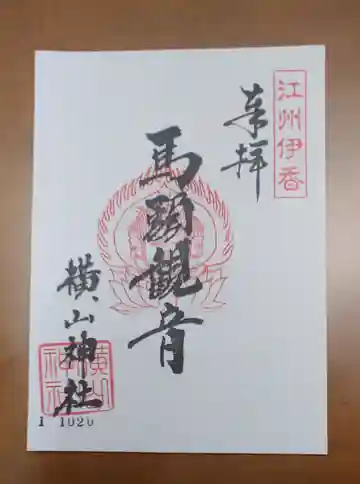 江州伊香
奉拝
馬頭観音
横山神社
横山神社
1 1020